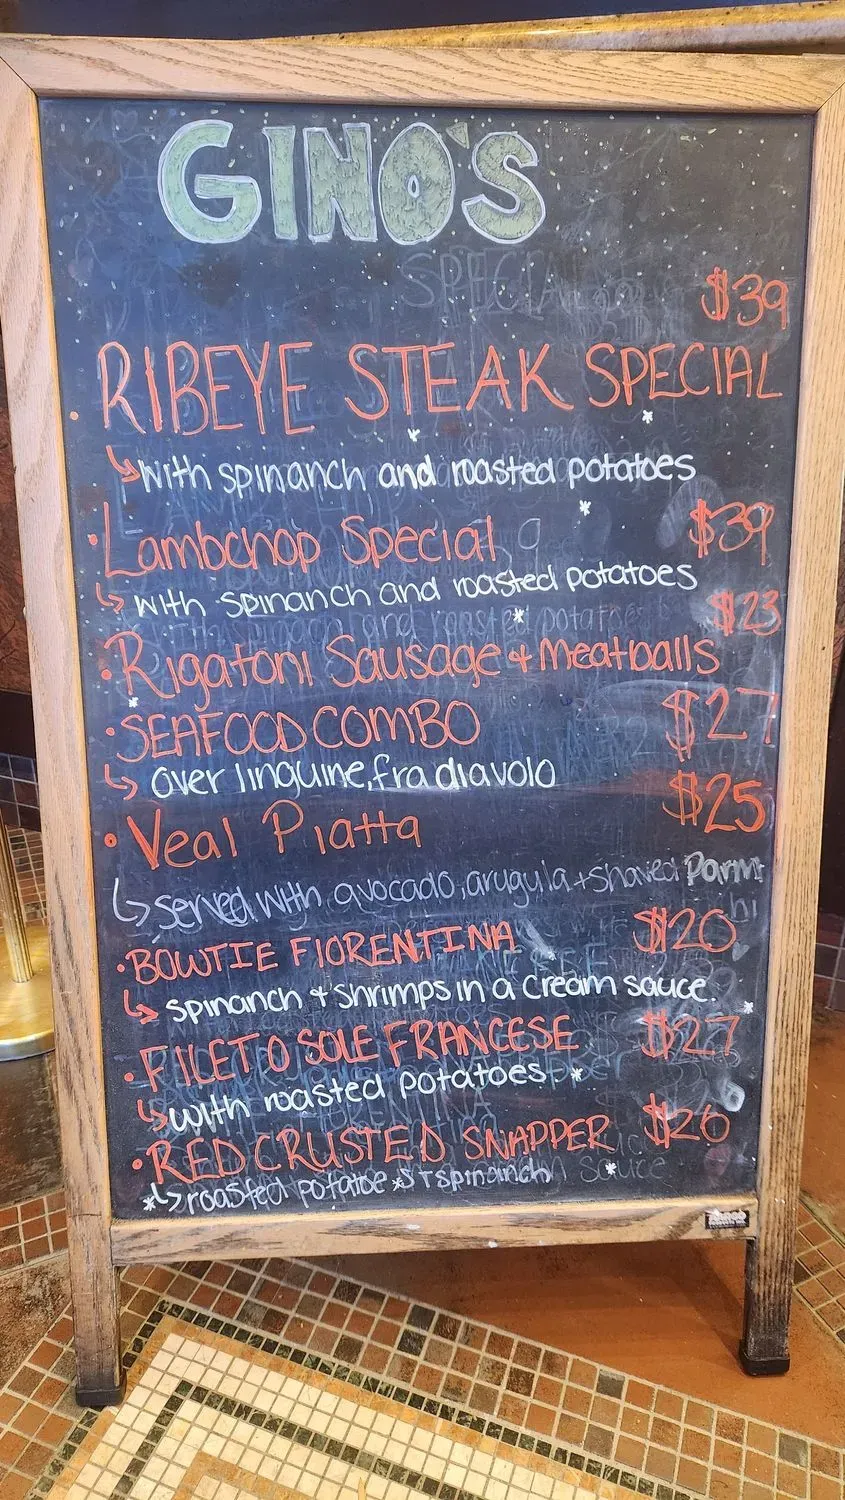 GINO'S
SPECIAL
$39
RIBEYE STEAK SPECIAL
↳ with spinanch and roasted potatoes
• Lambchop Special $39
↳ with spinanch and roasted potatoes
• Rigatoni Sausage + Meatballs $23
• SEAFOOD COMBO $27
↳ over linguine, fra diavolo
• Veal Piatta $25
↳ served with avocado, arugula + shaved Parm
hi
• BOWTIE FIORENTINA $20
↳ spinanch + shrimps in a cream sauce.
• FILET O SOLE FRANCESE $27
↳ with roasted potatoes
• RED CRUSTED SNAPPER $26
↳ roasted potatoes + spinanch